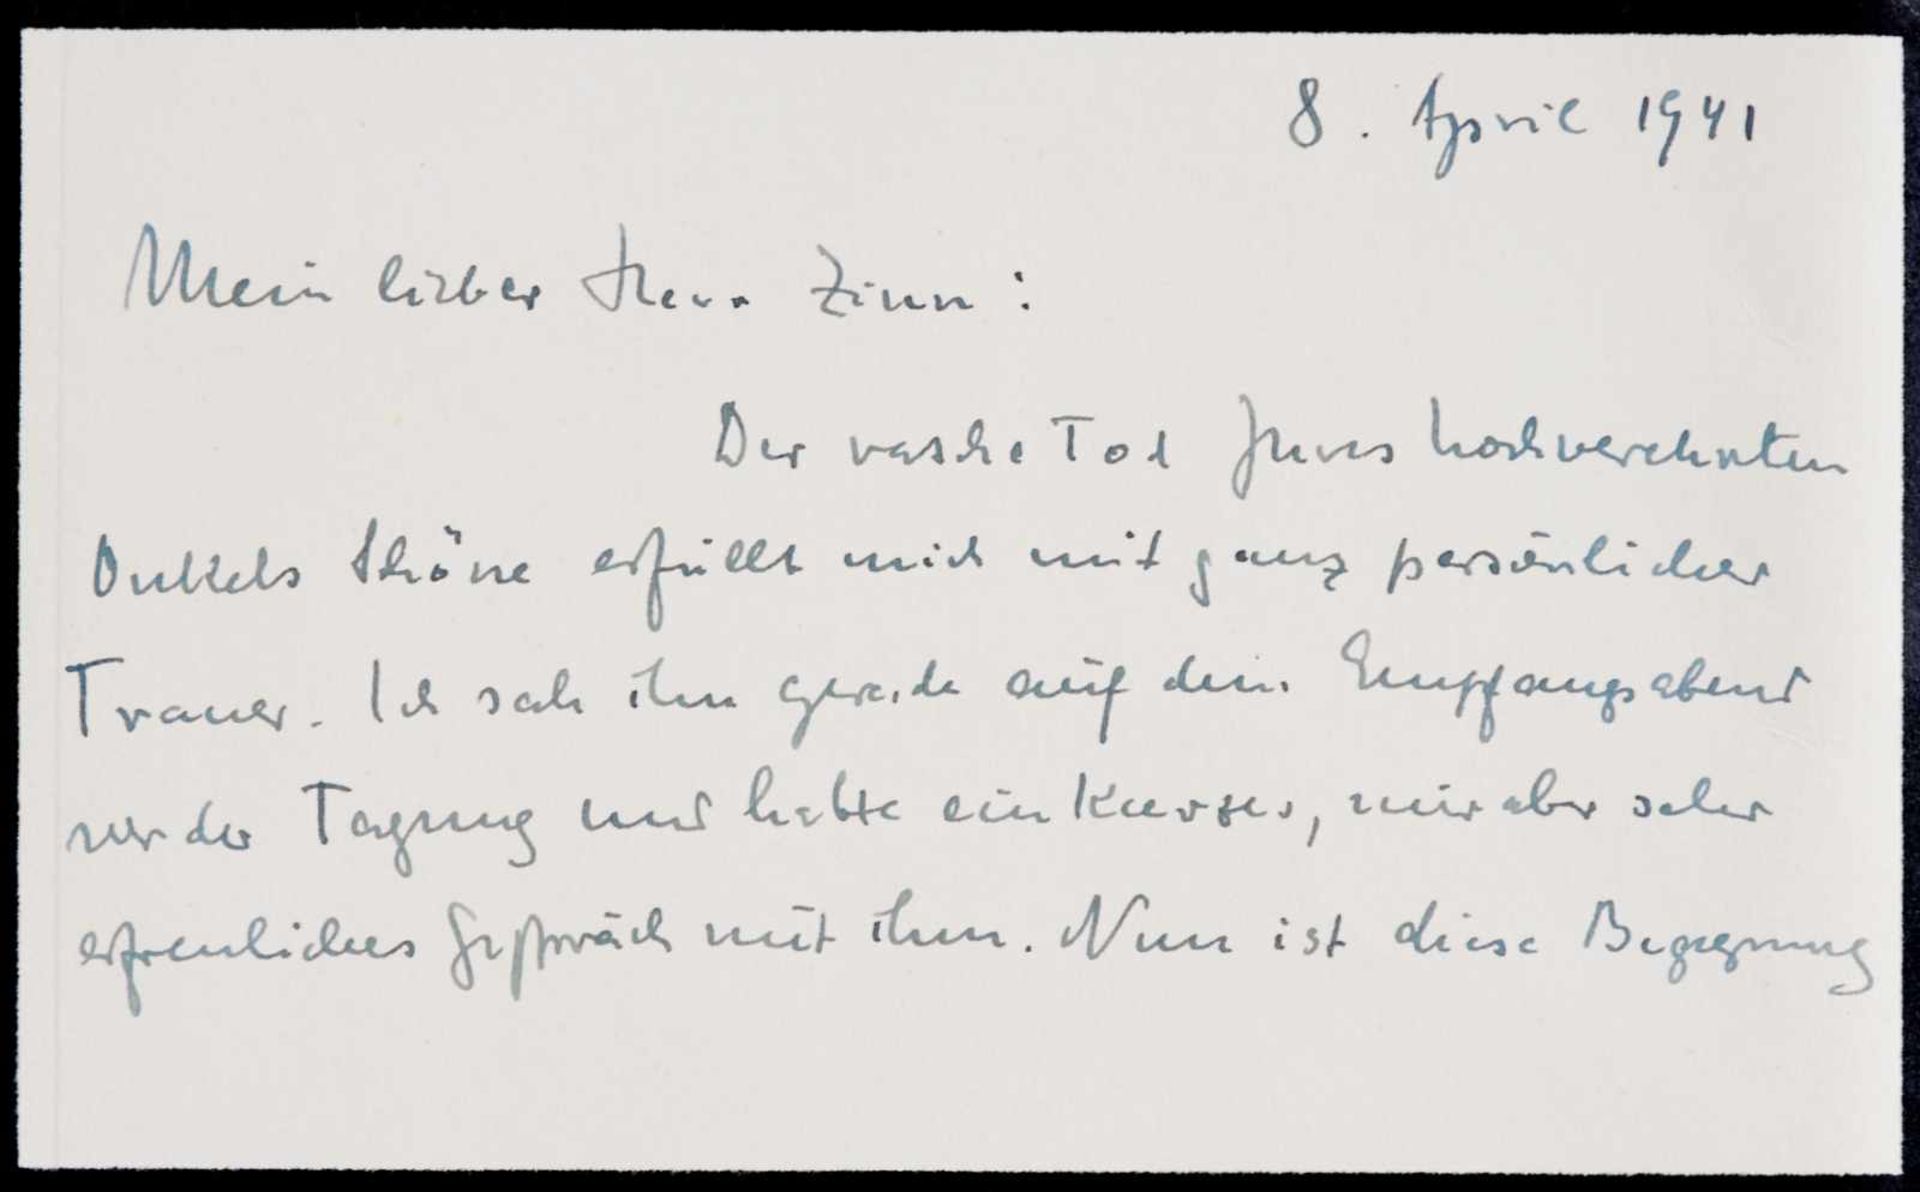 8. April 1941
Mein lieber Herr Zinn:
Der rasche Tod Ihres hochverehrten
Onkels Schöne erfüllt mich mit ganz persönlicher
Trauer. Ich sah ihn gerade auf dem Empfangsabend
vor der Tagung und hatte ein kurzes, mir aber sehr
erfreuliches Gespräch mit ihm. Nun ist diese Begegnung